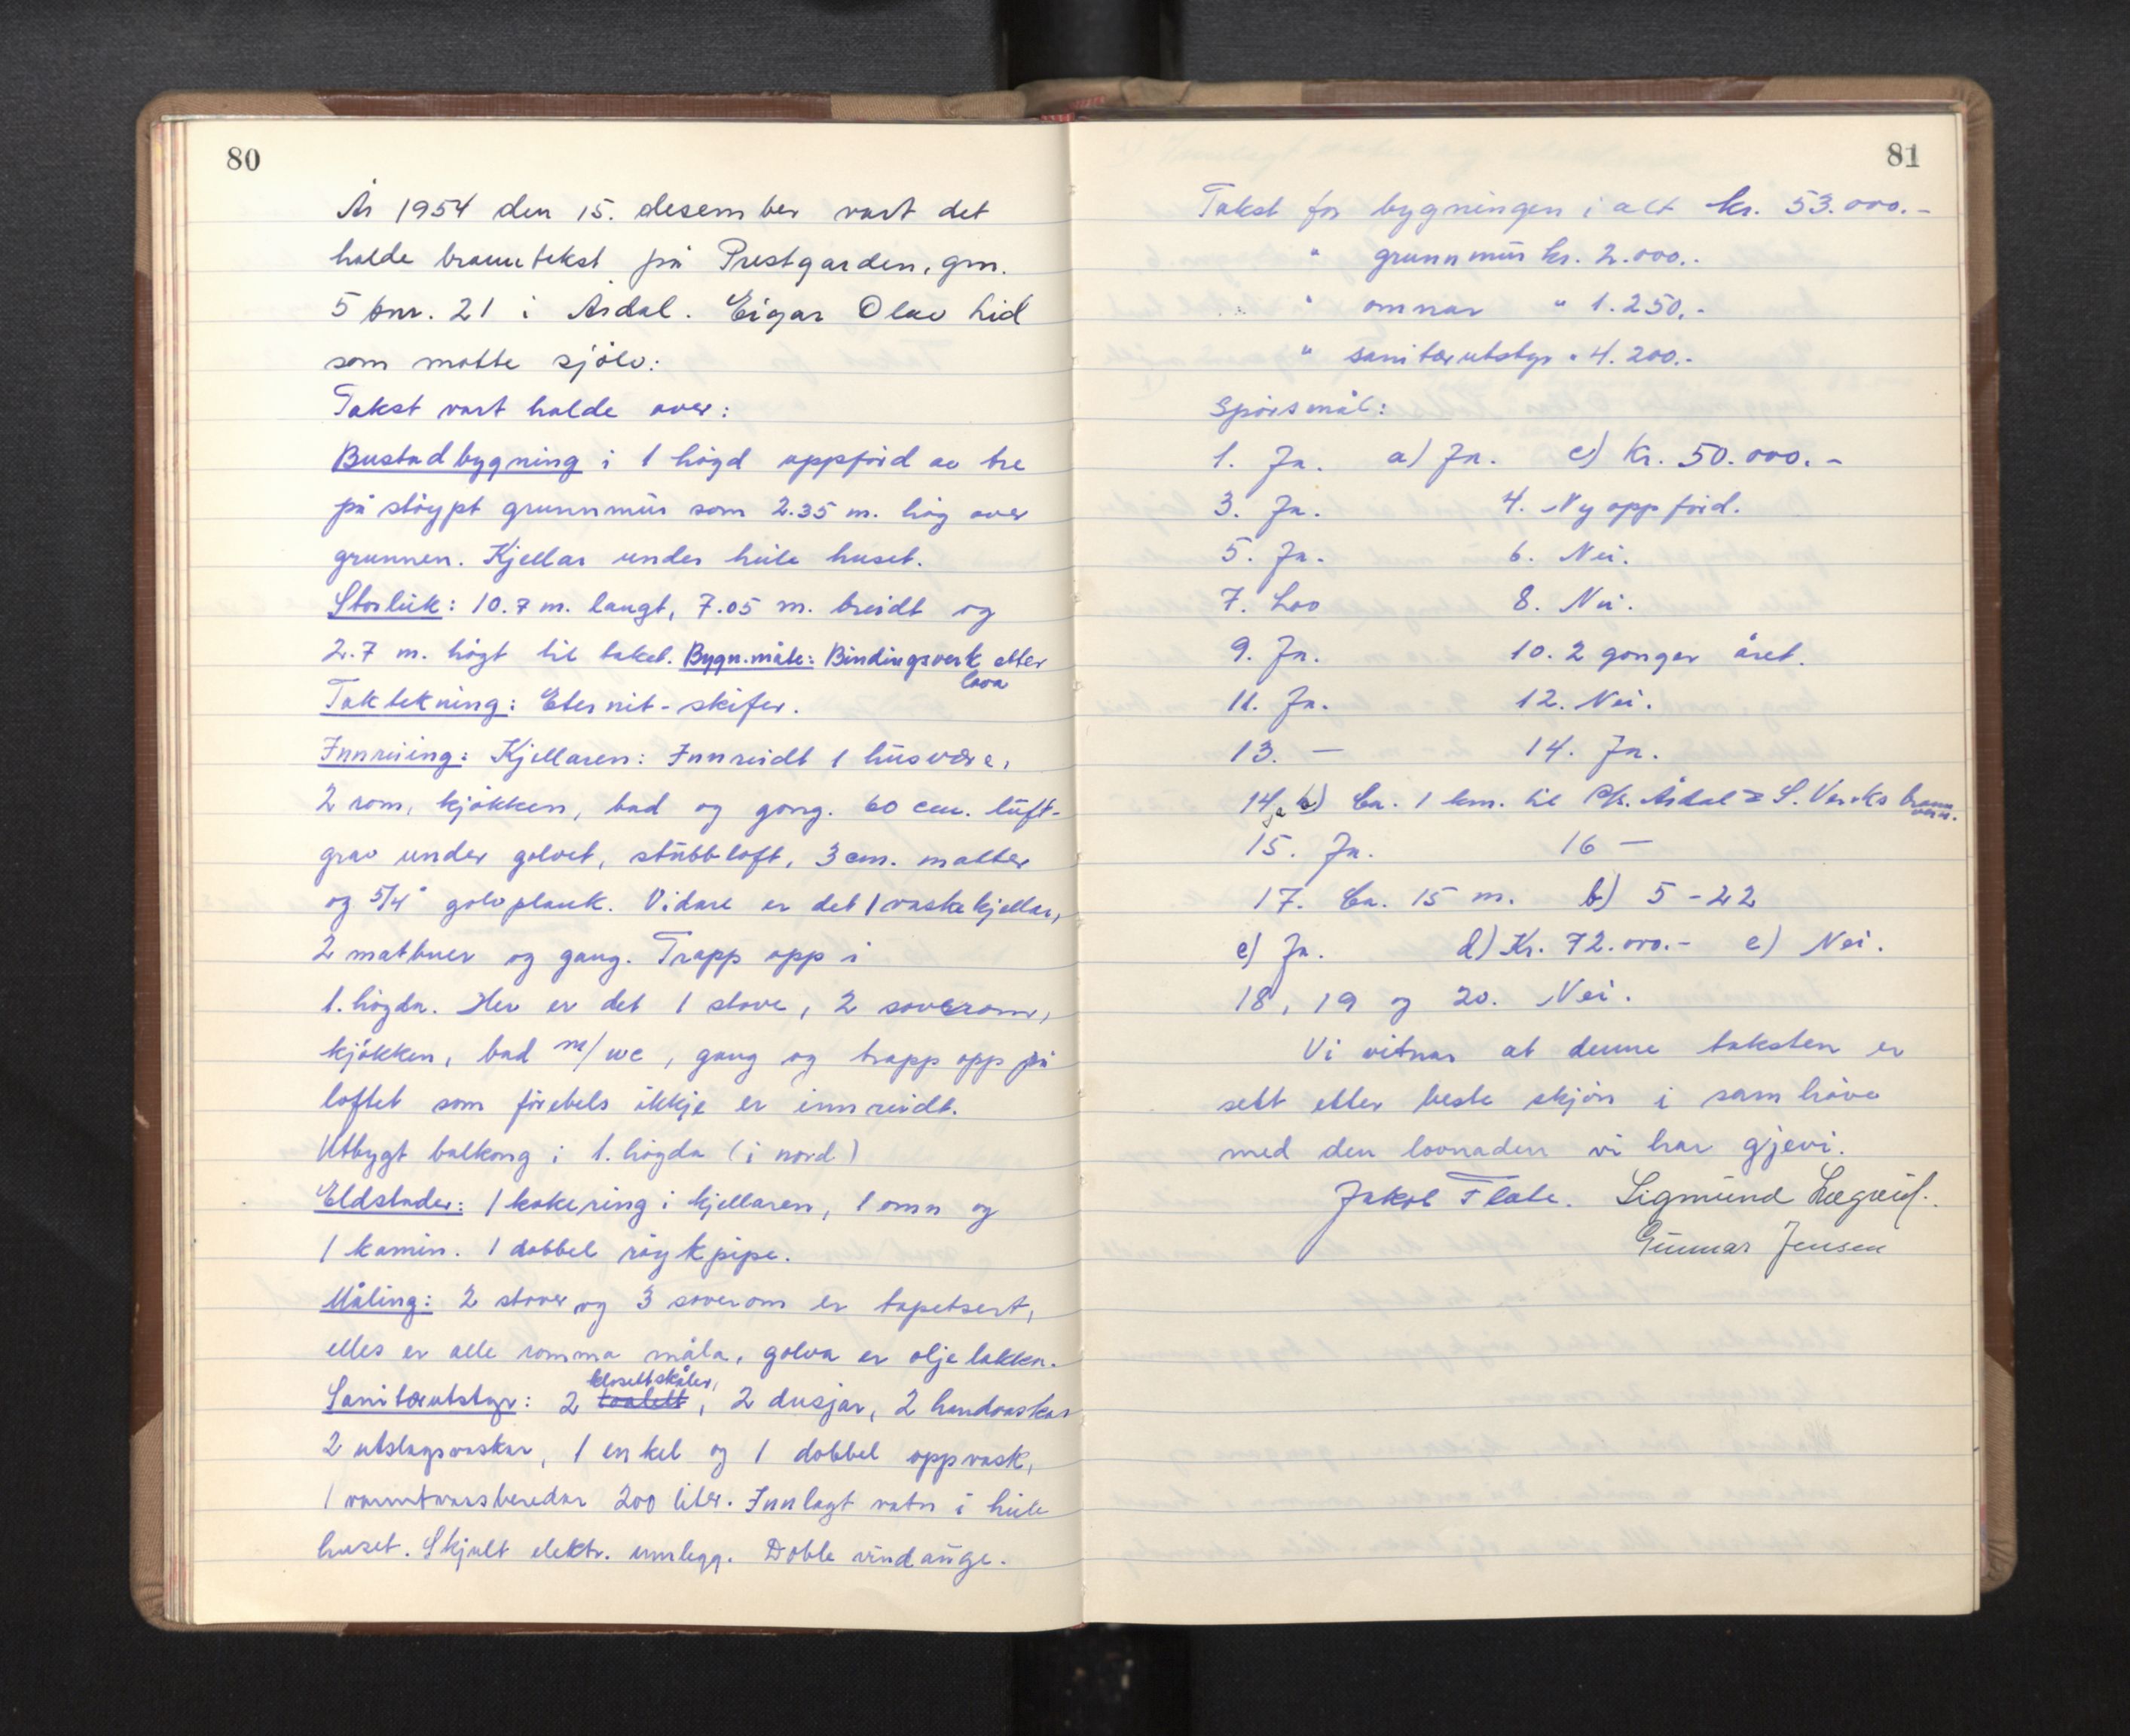 80
År 1954 den 15. desember vart det
halde branntakst på Prestgarden, gnr.
5 bnr. 21 i Årdal. Eigar Olav Lid
som møtte sjølv:
Takst vart halde over:
Bustadbygning i 1 høgd oppførd av tre
på støypt grunnmur som 2.35 m. høg over
grunnen. Kjellar under heile huset.
Storleik: 10.7 m. langt, 7.05 m. breidt og
2.7 m. høgt til taket. Bygn.måte: Bindingsverk etter
lova
Taktekning: Eternit-skifer.
Innreiing: Kjellaren: Innreidt 1 husvære,
2 rom, kjøkken, bad og gang. 60 cm. luft-
grav under golvet, stubbloft, 3 cm. matter
og 5/4" golvplank. Vidare er det 1 vaskekjellar,
2 matbuer og gang. Trapp opp i
1. høgda. Her er det 1 stove, 2 soverom,
kjøkken, bad m/wc, gang og trapp opp på
loftet som førebels ikkje er innreidt.
Utbygt balkong i 1. høgda (i nord)
Eldstader: 1 kokering i kjellaren, 1 omn og
1 kamin. 1 dobbel røykpipe.
Måling: 2 stover og 3 soverom er tapetsert,
elles er alle romma måla, golva er oljelakka.
klosettskåler,
Sanitærutstyr: 2 toalett, 2 dusjar, 2 handvaskar
2 utslagsvaskar, 1 enkel og 1 dobbel oppvask,
1 varmtvassberedar 200 liter. Innlagt vatn i heile
huset. Skjult elektr. innlegg. Doble vindauge.
81
Takst for bygningen i alt kr. 53.000.-
" grunnmur kr. 2.000.-
" omnar " 1.250.-
" sanitærutstyr " 4.200.-
Spørsmål:
1. Ja. a) Ja. c) Kr. 50.000.-
3. Ja. 4. Ny oppførd.
5. Ja. 6. Nei.
7. Lov 8. Nei.
9. Ja. 10. 2 gonger året.
11. Ja. 12. Nei.
13. — 14. Ja.
14 b) Ca. 1 km. til Årdal & S. Verks brann
vern.
15. Ja. 16 —
17. Ca. 15 m. b) 5-22
c) Ja. d) Kr. 72.000.- e) Nei.
18, 19 og 20. Nei.
Vi vitnar at denne taksten er
sett etter beste skjøn i samhøve
med den lovnaden vi har gjevi.
Jakob Flate. Sigmund Lægreid.
Gunnar Jensen